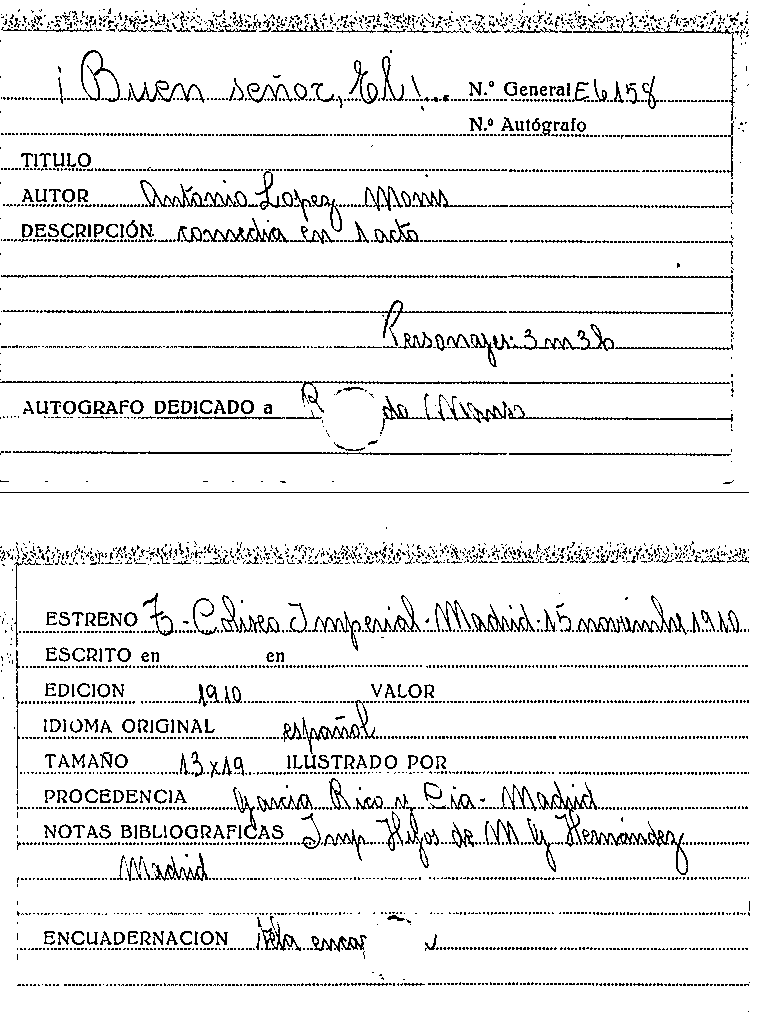 ¡Buen señor, El!... N.º General E6158
N.º Autógrafo
TITULO
AUTOR Antonio Lopez Monis
DESCRIPCIÓN comedia en 1 acto
Personajes: 3 m 3 h
AUTOGRAFO DEDICADO a R de
ESTRENO T - Coliseo Imperial - Madrid - 15 noviembre 1910
ESCRITO en en
EDICION 1910 VALOR
IDIOMA ORIGINAL español
TAMAÑO 13x19 ILUSTRADO POR
PROCEDENCIA Garcia Rico y Cia - Madrid
NOTAS BIBLIOGRAFICAS Imp Hijos de M G Hernández
Madrid
ENCUADERNACION tela